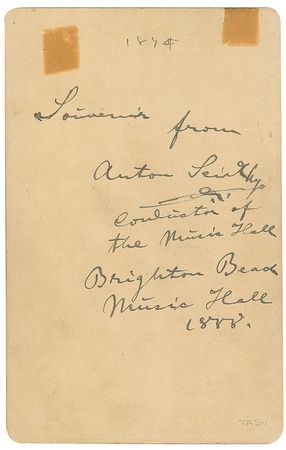 Souvenir
from
Anton
conductor of
the Music Hall
Brighton Beach
Music Hall
1888.